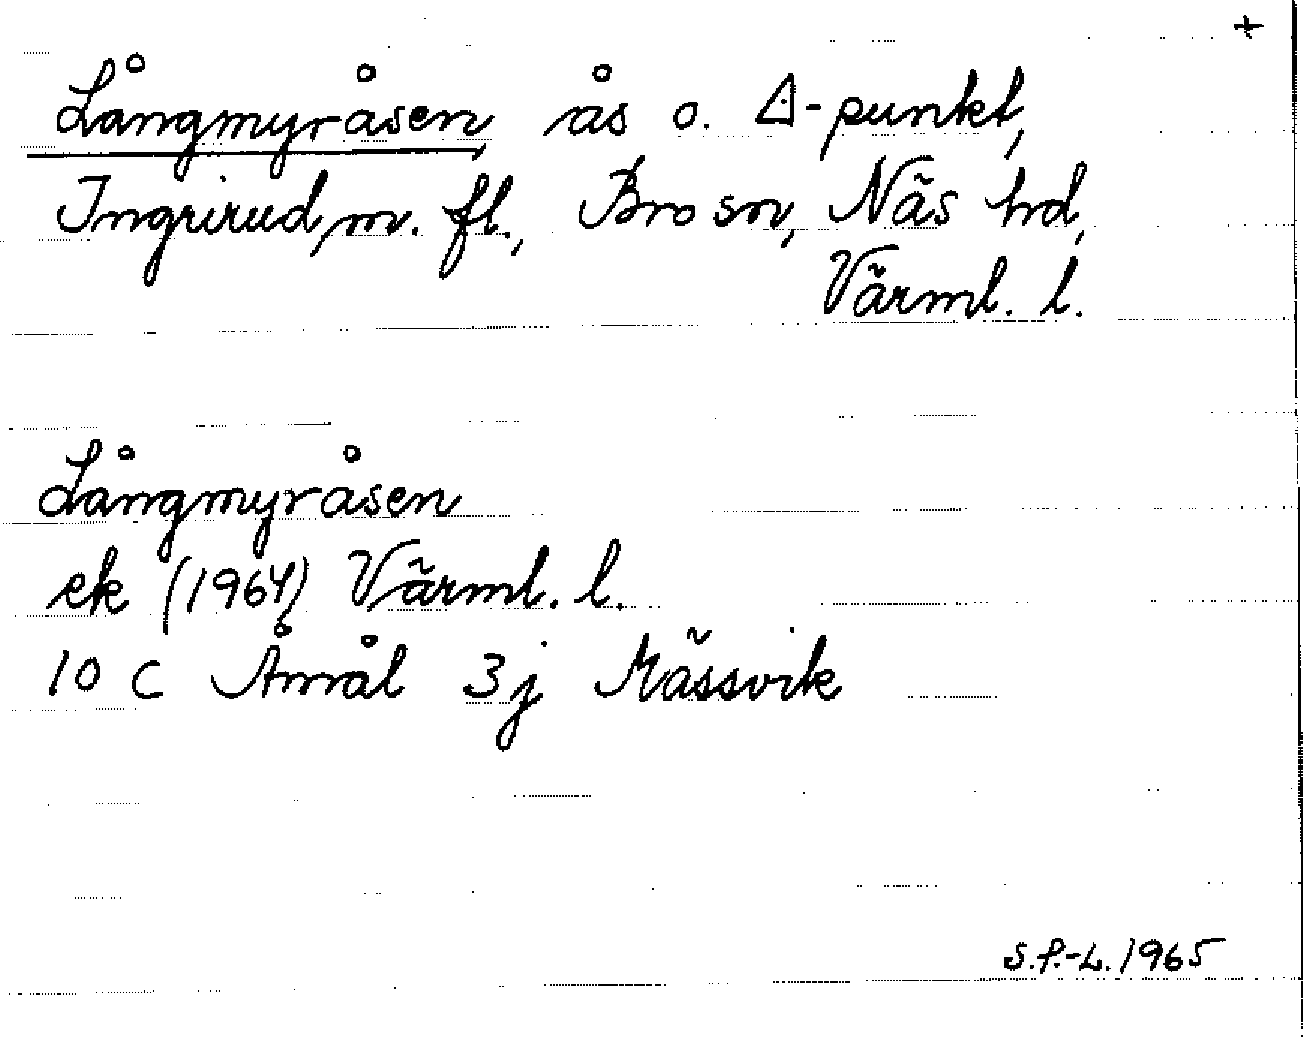 +
Långmyråsen ås o. △-punkt,
Ingrirud, m. fl., Bro sn, Näs hd,
Värml. l.
Långmyråsen
ek (1964) Värml. l.
10 C Åmål 3j Mässvik
S.P.-L. 1965